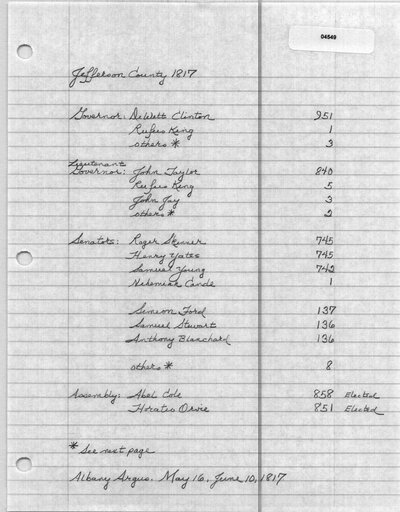 04549
Jefferson County 1817
Governor: DeWett Clinton 951
Rufus King 1
others * 3
Lieutenant
Governor: John Taylor 840
Rufus King 5
John Jay 3
others * 2
Senators: Roger Skinner 745
Henry Yates 745
Samuel Young 742
Nehemiah Cande 1
Simeon Ford 137
Samuel Stewart 136
Anthony Blanchard 136
others * 8
Assembly: Abel Cole 858 Elected
Horatio Orvie 851 Elected
* See next page
Albany Argus. May 16, June 10, 1817